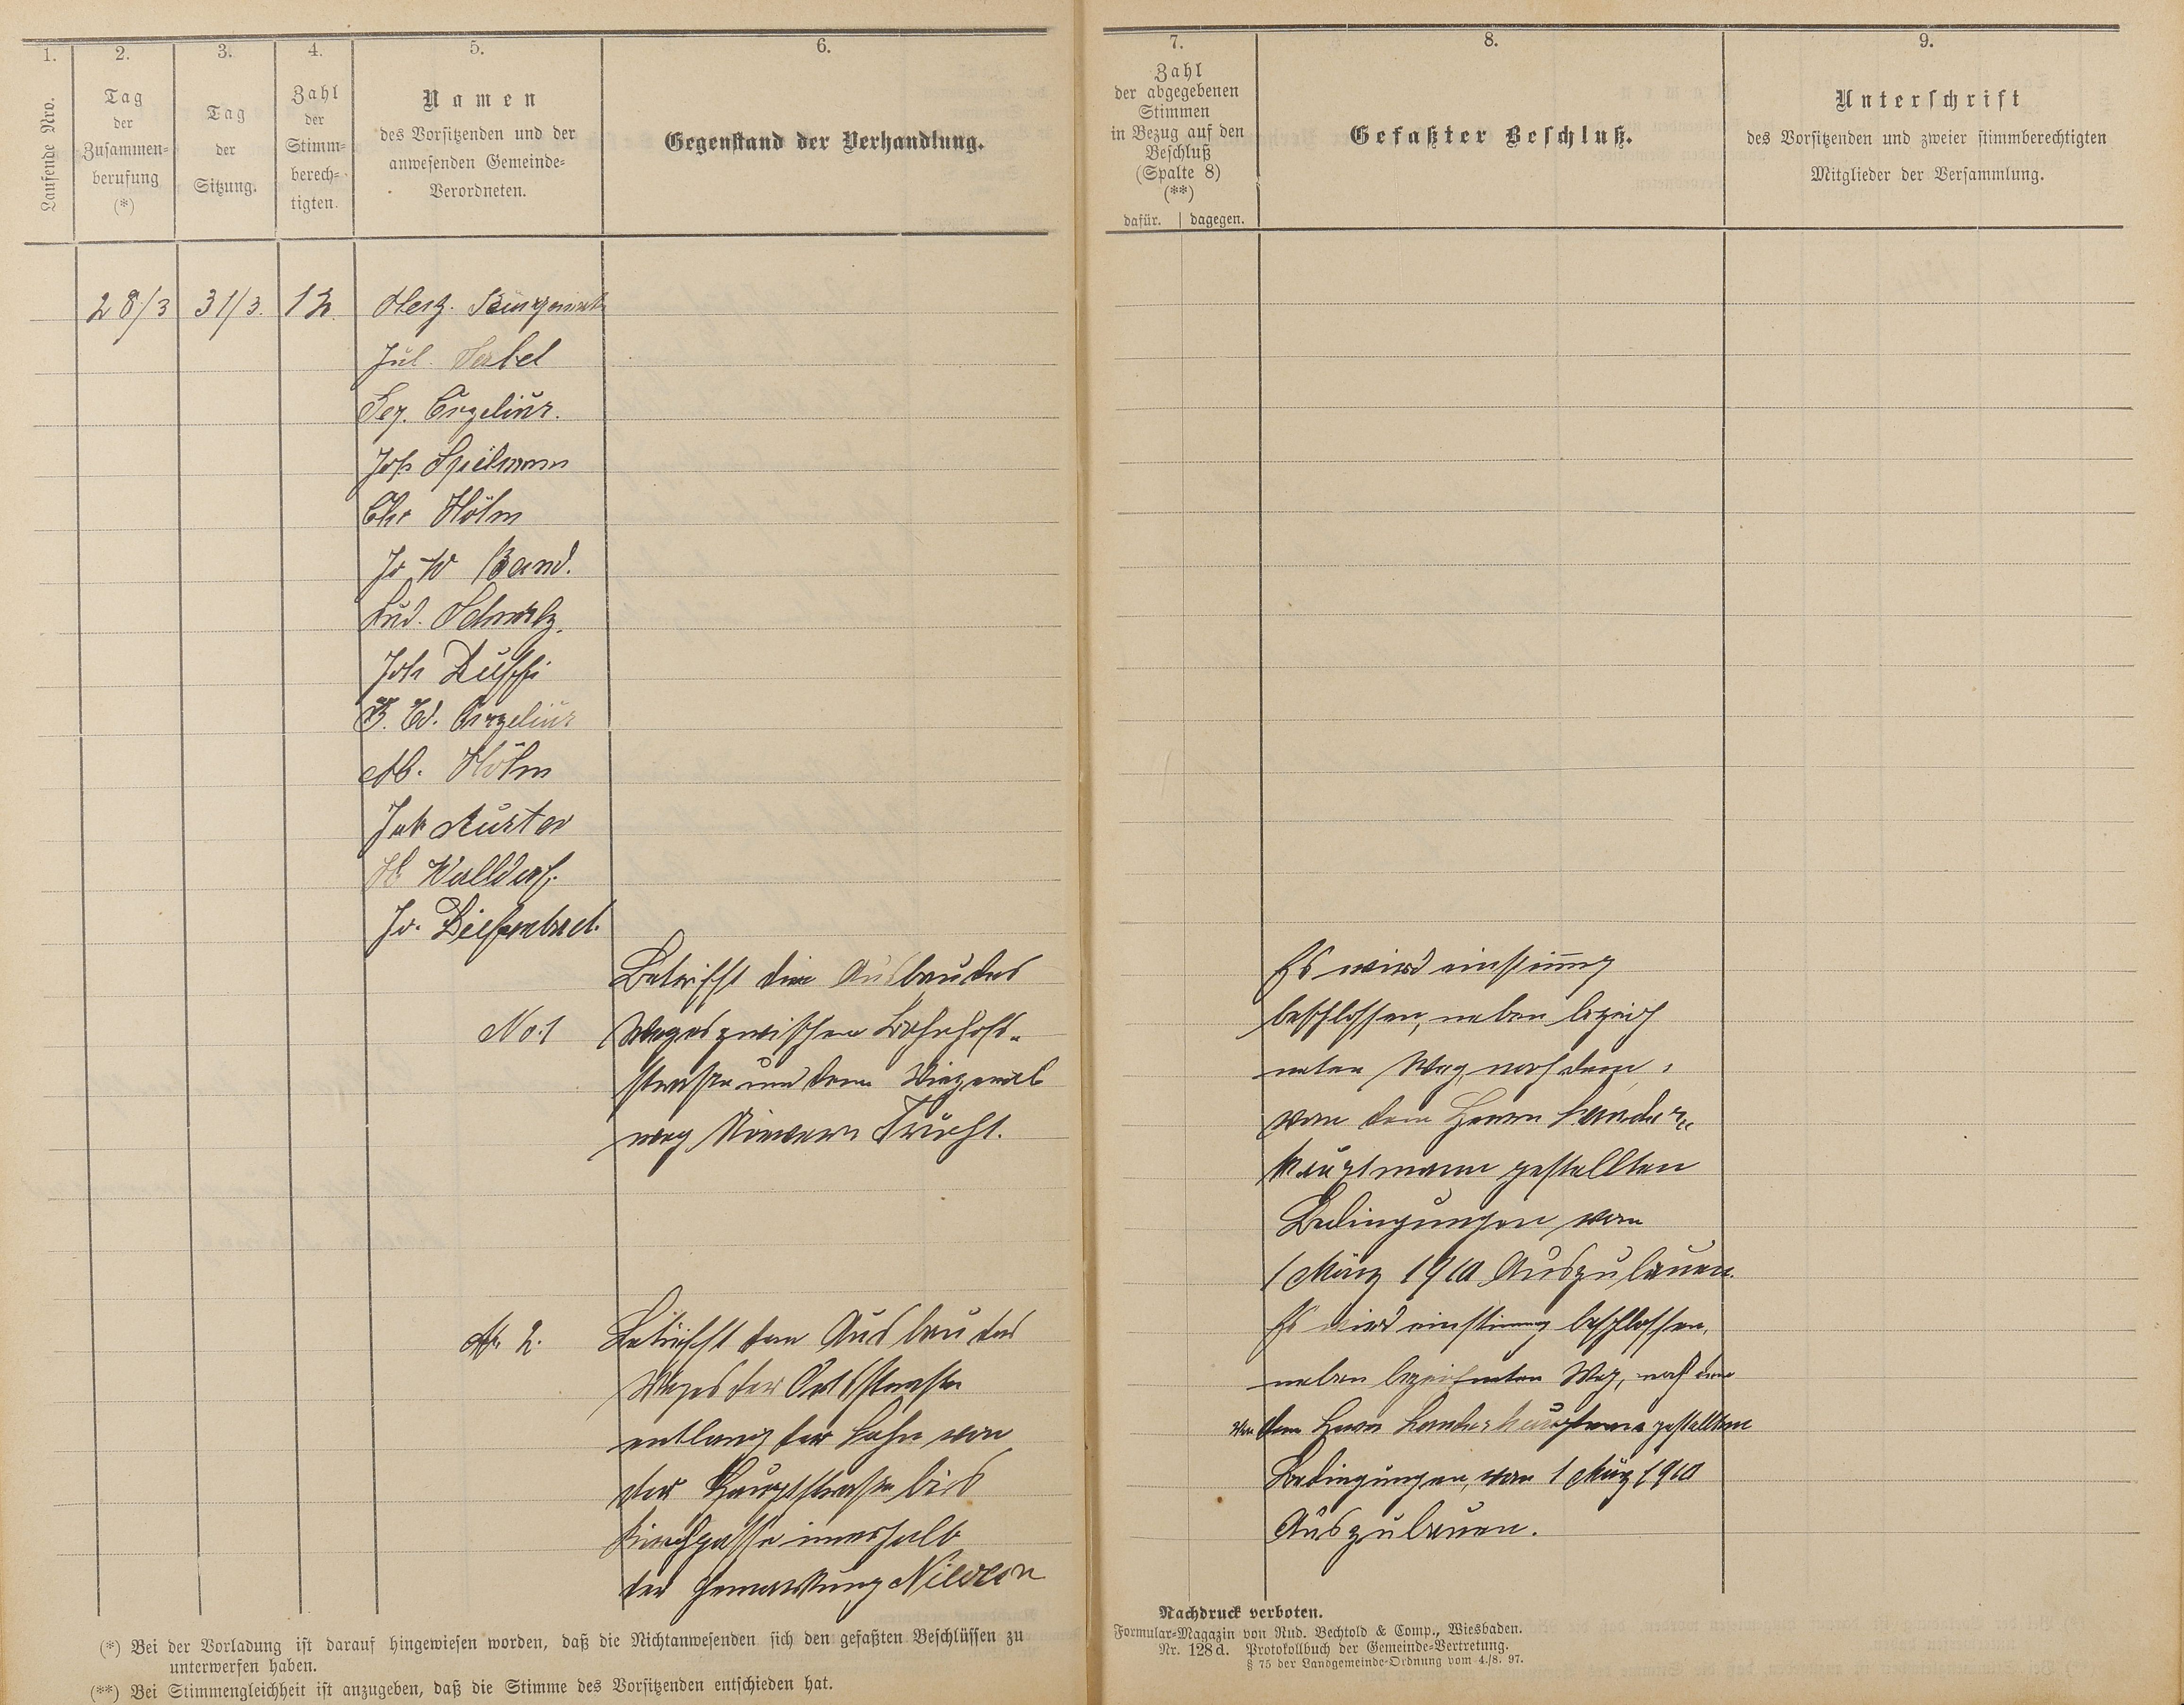 1.
2.
3.
4.
5.
6.
Laufende Nro.
Tag
der
Zusammen=
berufung
(*)
Tag
der
Sitzung.
Zahl
der
Stimm=
berech=
tigten.
Namen
des Vorsitzenden und der
anwesenden Gemeinde=
Verordneten.
Gegenstand der Verhandlung.
28/3 31/3. 12
Jul.
Seq. Curzelius.
Jos. Spielmann
Chr Höhn
Jo W Band.
Lud. Schmelz.
Joh
B. Ed. Curzelius
Ab. Höhn
Jak Kuster
H Walldorf.
Jo. Diefenbach.
Betrifft die Ausbau des
No. 1 Weges zwischen Bahnhofs=
strasse und dem Vizenal
weg Nievern Frücht.
Nr. 2. Betrifft den Ausbau des
Weges der Ortsstrasse
entlang der Lahn von
der Hauptstrasse bis
Kirchgasse innerhalb
der Gemarkung Nievern
(*) Bei der Vorladung ist darauf hingewiesen worden, daß die Nichtanwesenden sich den gefaßten Beschlüssen zu
unterwerfen haben.
(**) Bei Stimmengleichheit ist anzugeben, daß die Stimme des Vorsitzenden entschieden hat.
7.
8.
9.
Zahl
der abgegebenen
Stimmen
in Bezug auf den
Beschluß
(Spalte 8)
(**)
dafür. | dagegen.
Gefaßter Beschluß.
Unterschrift
des Vorsitzenden und zweier stimmberechtigten
Mitglieder der Versammlung.
Es wird einstimmg
beschlossen, neben bezeich
neten Weg, nach dem,
von dem Herrn Landes=
hauptmann gestellten
Bedingungen vom
1 März 1910 Auszubauen.
Es wird einstimmg beschlossen,
neben bezeichneten Weg, nach dem
von dem Herrn Landeshauptmann gestellten
Bedingungen, vom 1 März 1910
Auszubauen.
Nachdruck verboten.
Formular=Magazin von Rud. Bechtold & Comp., Wiesbaden.
Nr. 128d. Protokollbuch der Gemeinde=Vertretung.
§ 75 der Landgemeinde=Ordnung vom 4./8. 97.